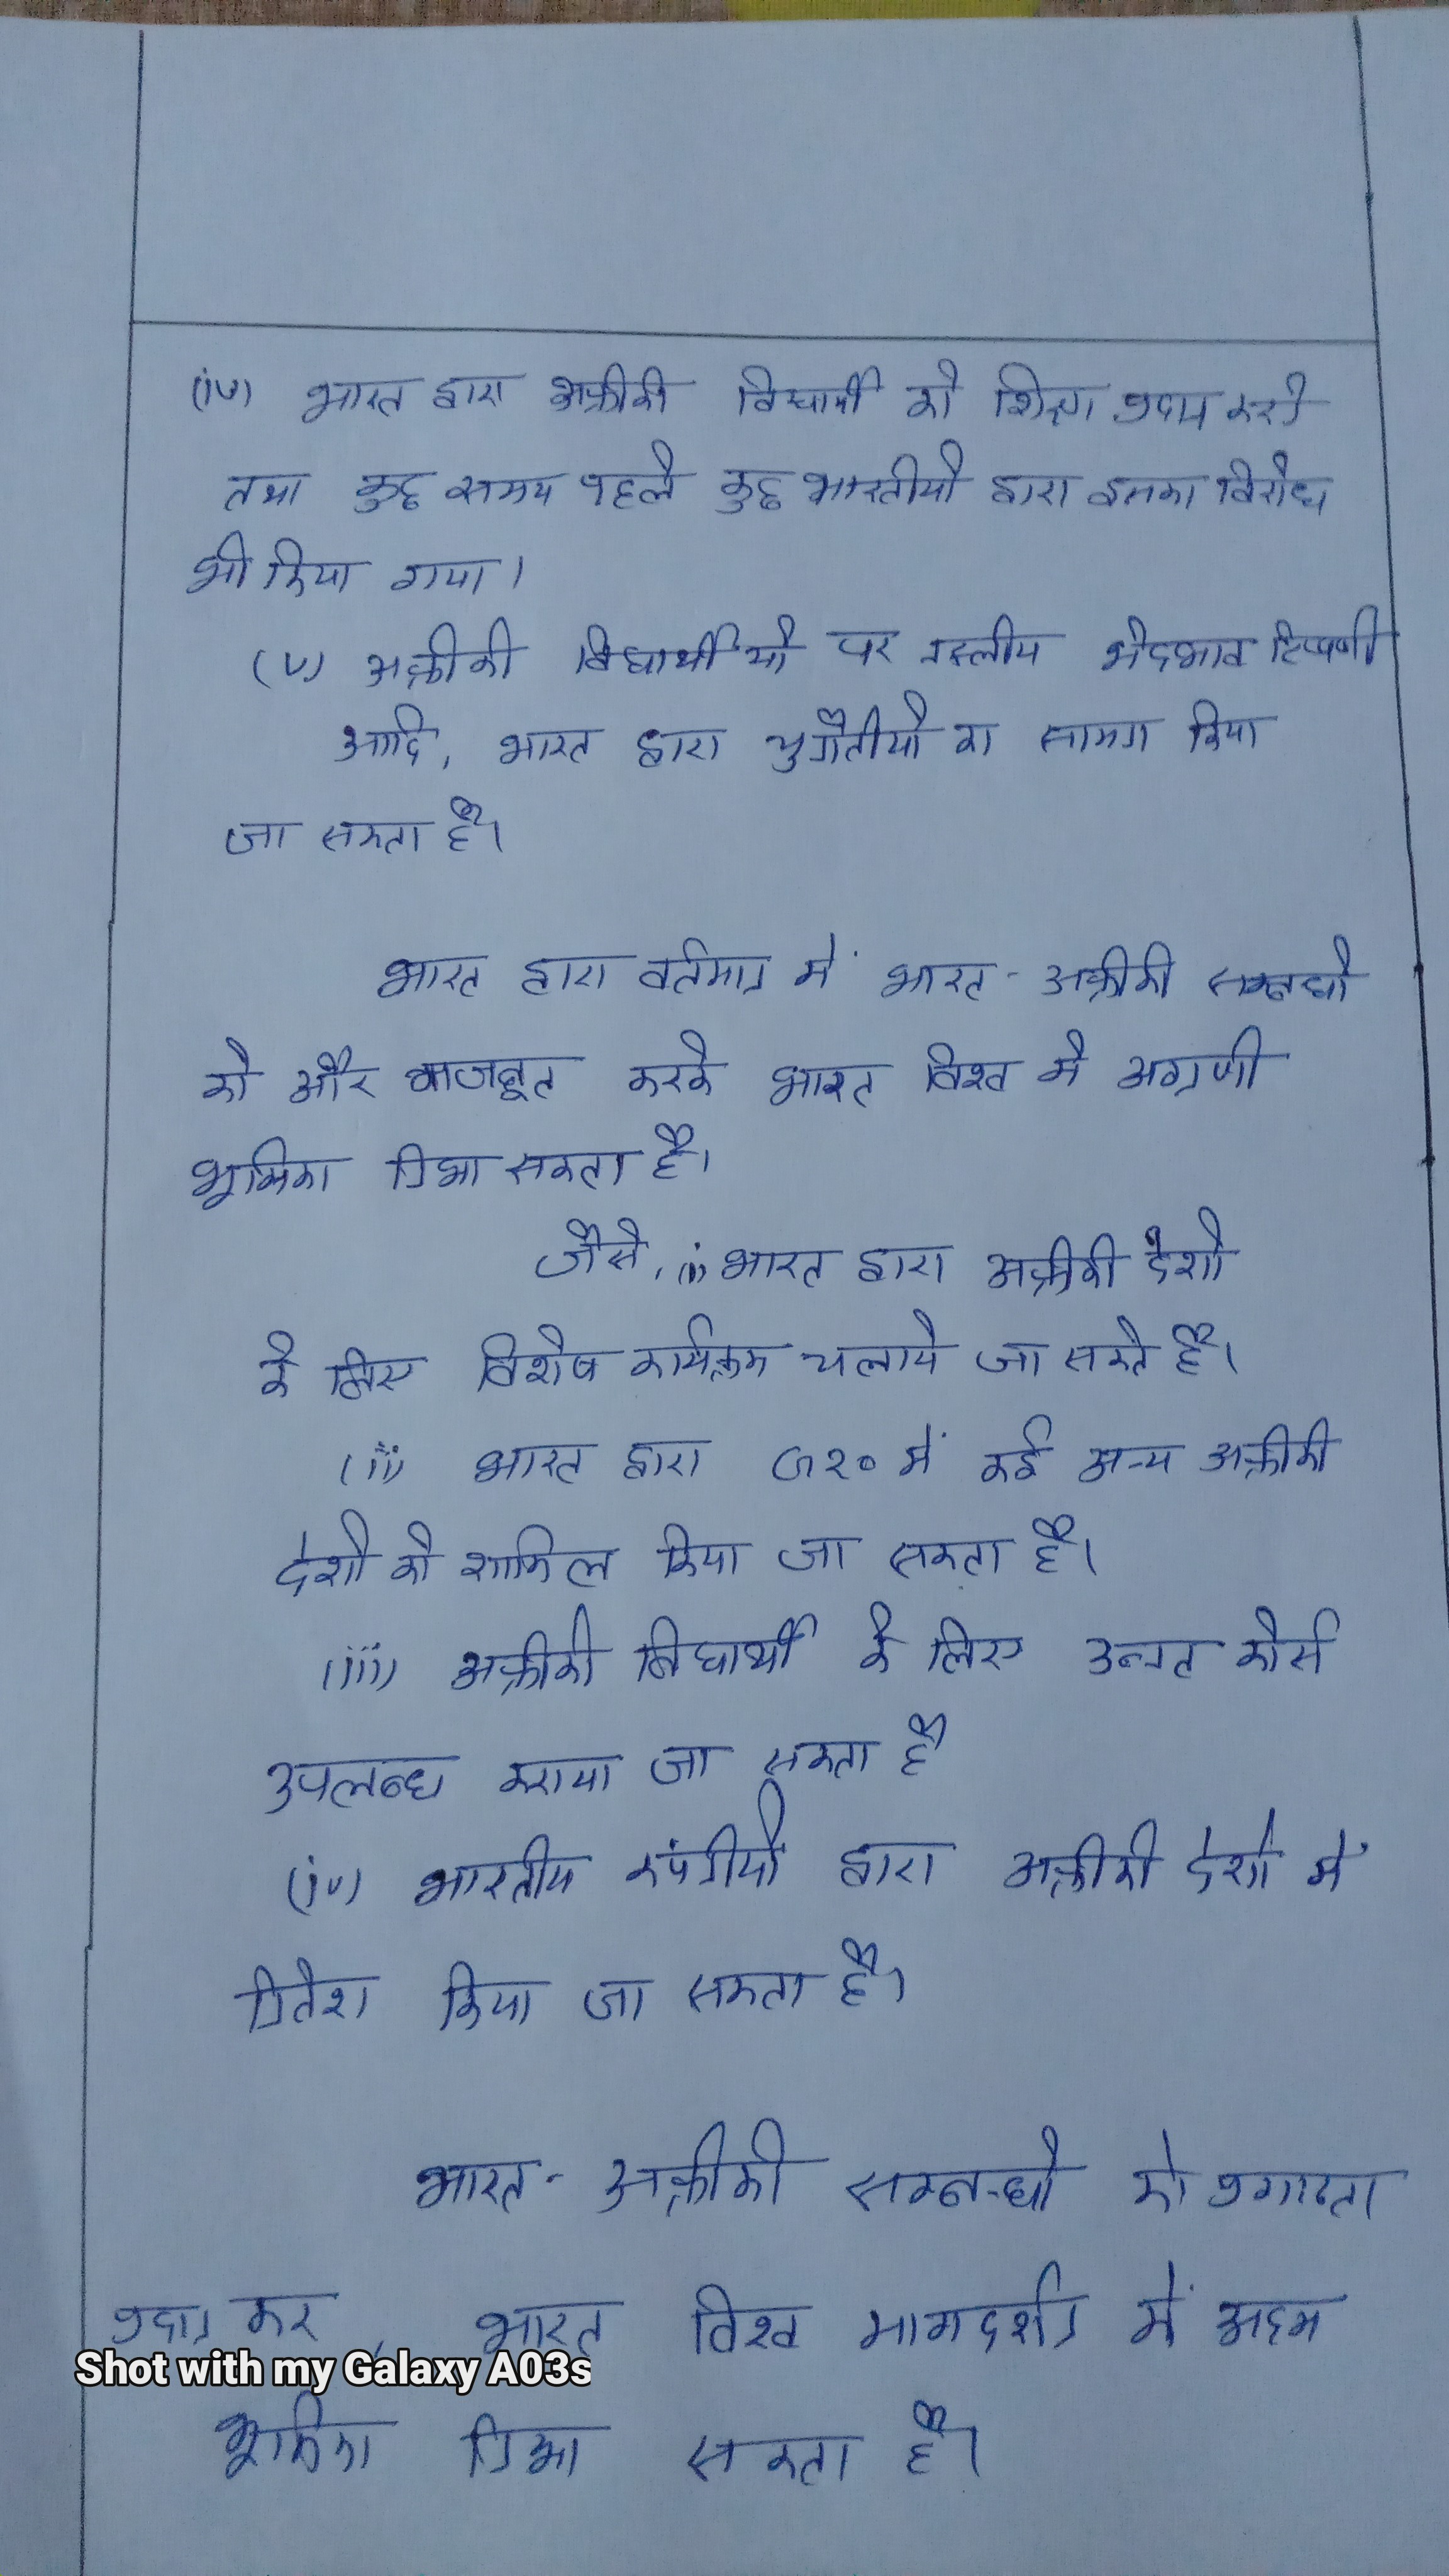 (iv) भारत द्वारा अफ्रीकी विद्यार्थी को शिक्षा प्रदान करने
तथा कुछ समय पहले कुछ भारतीयो द्वारा इसका विरोध
भी किया गया।
(v) अफ्रीकी विद्यार्थीयो पर नस्लीय भेदभाव टिप्पणी
आदि, भारत द्वारा चुनौतीयो का सामना किया
जा सकता है।
भारत द्वारा वर्तमान में भारत - अफ्रीकी सम्बन्धो
को और मजबूत करके भारत विश्व मे अग्रणी
भूमिका निभा सकता है।
जैसे, (i) भारत द्वारा अफ्रीकी देशो
के लिए विशेष कार्यक्रम चलाये जा सकते हैं।
(ii) भारत द्वारा G२० में कई अन्य अफ्रीकी
देशो को शामिल किया जा सकता है।
(iii) अफ्रीकी विद्यार्थी के लिए उन्नत कोर्स
उपलब्ध कराया जा सकता है
(iv) भारतीय कंपनीयो द्वारा अफ्रीकी देशो में
निवेश किया जा सकता है।
भारत - अफ्रीकी सम्बन्धो को प्रगाढता
प्रदान कर, भारत विश्व मागदर्शन में अहम
Shot with my Galaxy A03s
भूमिका निभा सकता है।